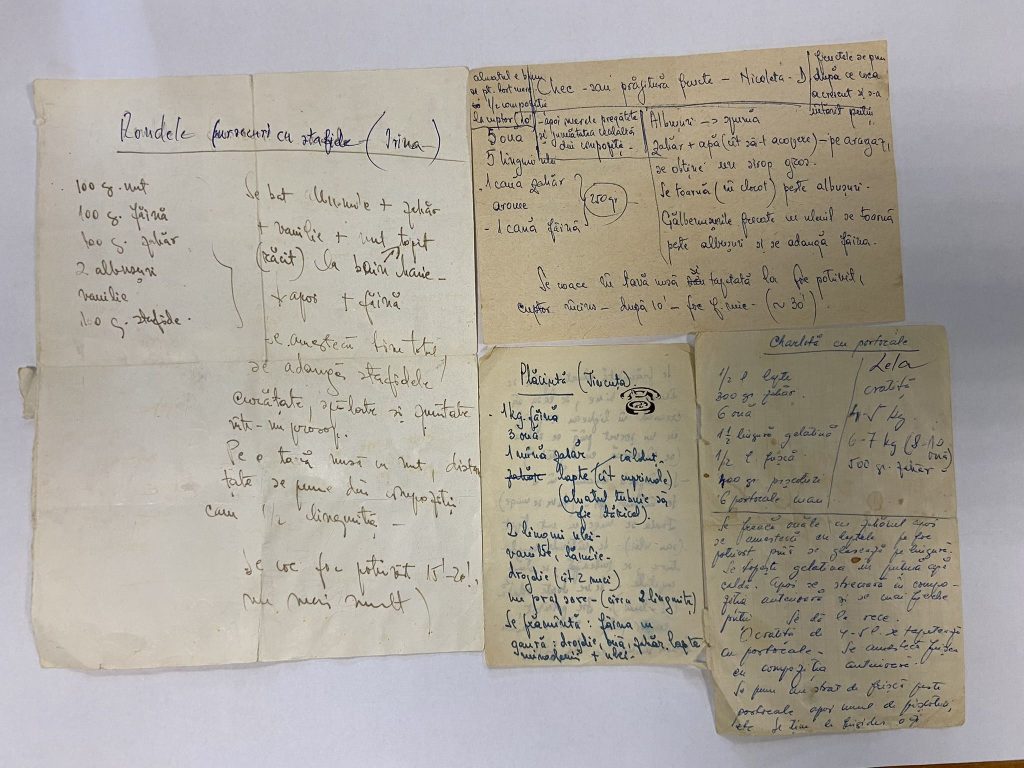 Rondele fursecuri cu stafide (Irina)
100 g. unt
100 g. făină
100 g. zahăr
2 albușuri
vanilie
100 g. stafide.
Se bat albușurile + zahăr
+ vanilie + unt topit
(răcit) la bain Marie -
+ apoi + făină
se amestecă bine totul,
se adaugă stafidele
curătate, spălate și
într-un prosop.
Pe o tavă unsă cu unt, distan-
țate se pune din compoziție
cam 1/2 linguriță -
Se coc foc potrivit 15'-20',
nu mai mult)
aluatul e bun
și pt. tort mere
1/2 compoziție
la cuptor (10')
- apoi merele pregătite
și jumătatea cealaltă
din compoziție -
Chec - sau prăjitură fructe - Nicoleta - D
fructele se pun
după ce coca
a crescut și s-a
întărit puțin
5 ouă
5 linguri ulei
- 1 cană zahăr
arome
- 1 cană făină
250 gr
Albușuri -> spumă
Zahăr + apă (cît să-l acopere) - pe aragaz,
se obține un sirop gros.
Se toarnă (în clocot) peste albușuri.
Gălbenușurile frecate cu uleiul se toarnă
peste albușuri și se adaugă făina.
Se coace în tavă unsă sau tapetată la foc potrivit,
cuptor încins - după 10' - foc f. mic - (~ 30')!
Plăcintă (Tincuța)
- 1 kg. făină
3 ouă
1 mînă zahăr
zahăr lapte (cît cuprinde) călduț
(aluatul trebuie să
fie tăricel)
2 linguri ulei -
vanilie, lămîie -
drojdie (cît 2 nuci)
un praf sare - (circa 2 lingurițe)
Se frămîntă: făina cu
gaură; drojdie, ouă, zahăr, lapte
+ ulei -
Charlotă cu portocale
1/2 l lapte
300 gr. zahăr.
6 ouă
1 1/2 lingură gelatină
1/2 l frișcă
400 gr. pișcoturi
6 portocale mari
Lela
cratiță
4-5 kg.
6-7 kg (8-10
ouă)
500 gr. zahăr
Se freacă ouăle cu zahărul apoi
se amestecă cu laptele pe foc
potrivit pînă se glasează pe lingură.
Se topește gelatina în puțină apă
caldă. Apoi se strecoară în compo-
ziția anterioară și se mai fierbe
puțin. Se dă la rece.
O cratiță de 4-5 l. se tapetează
cu portocale - Se amestecă frișca
cu compoziția anterioară.
Se pune un strat de frișcă peste
portocale apoi unul de pișcoturi,
etc Se ține la frigider o zi